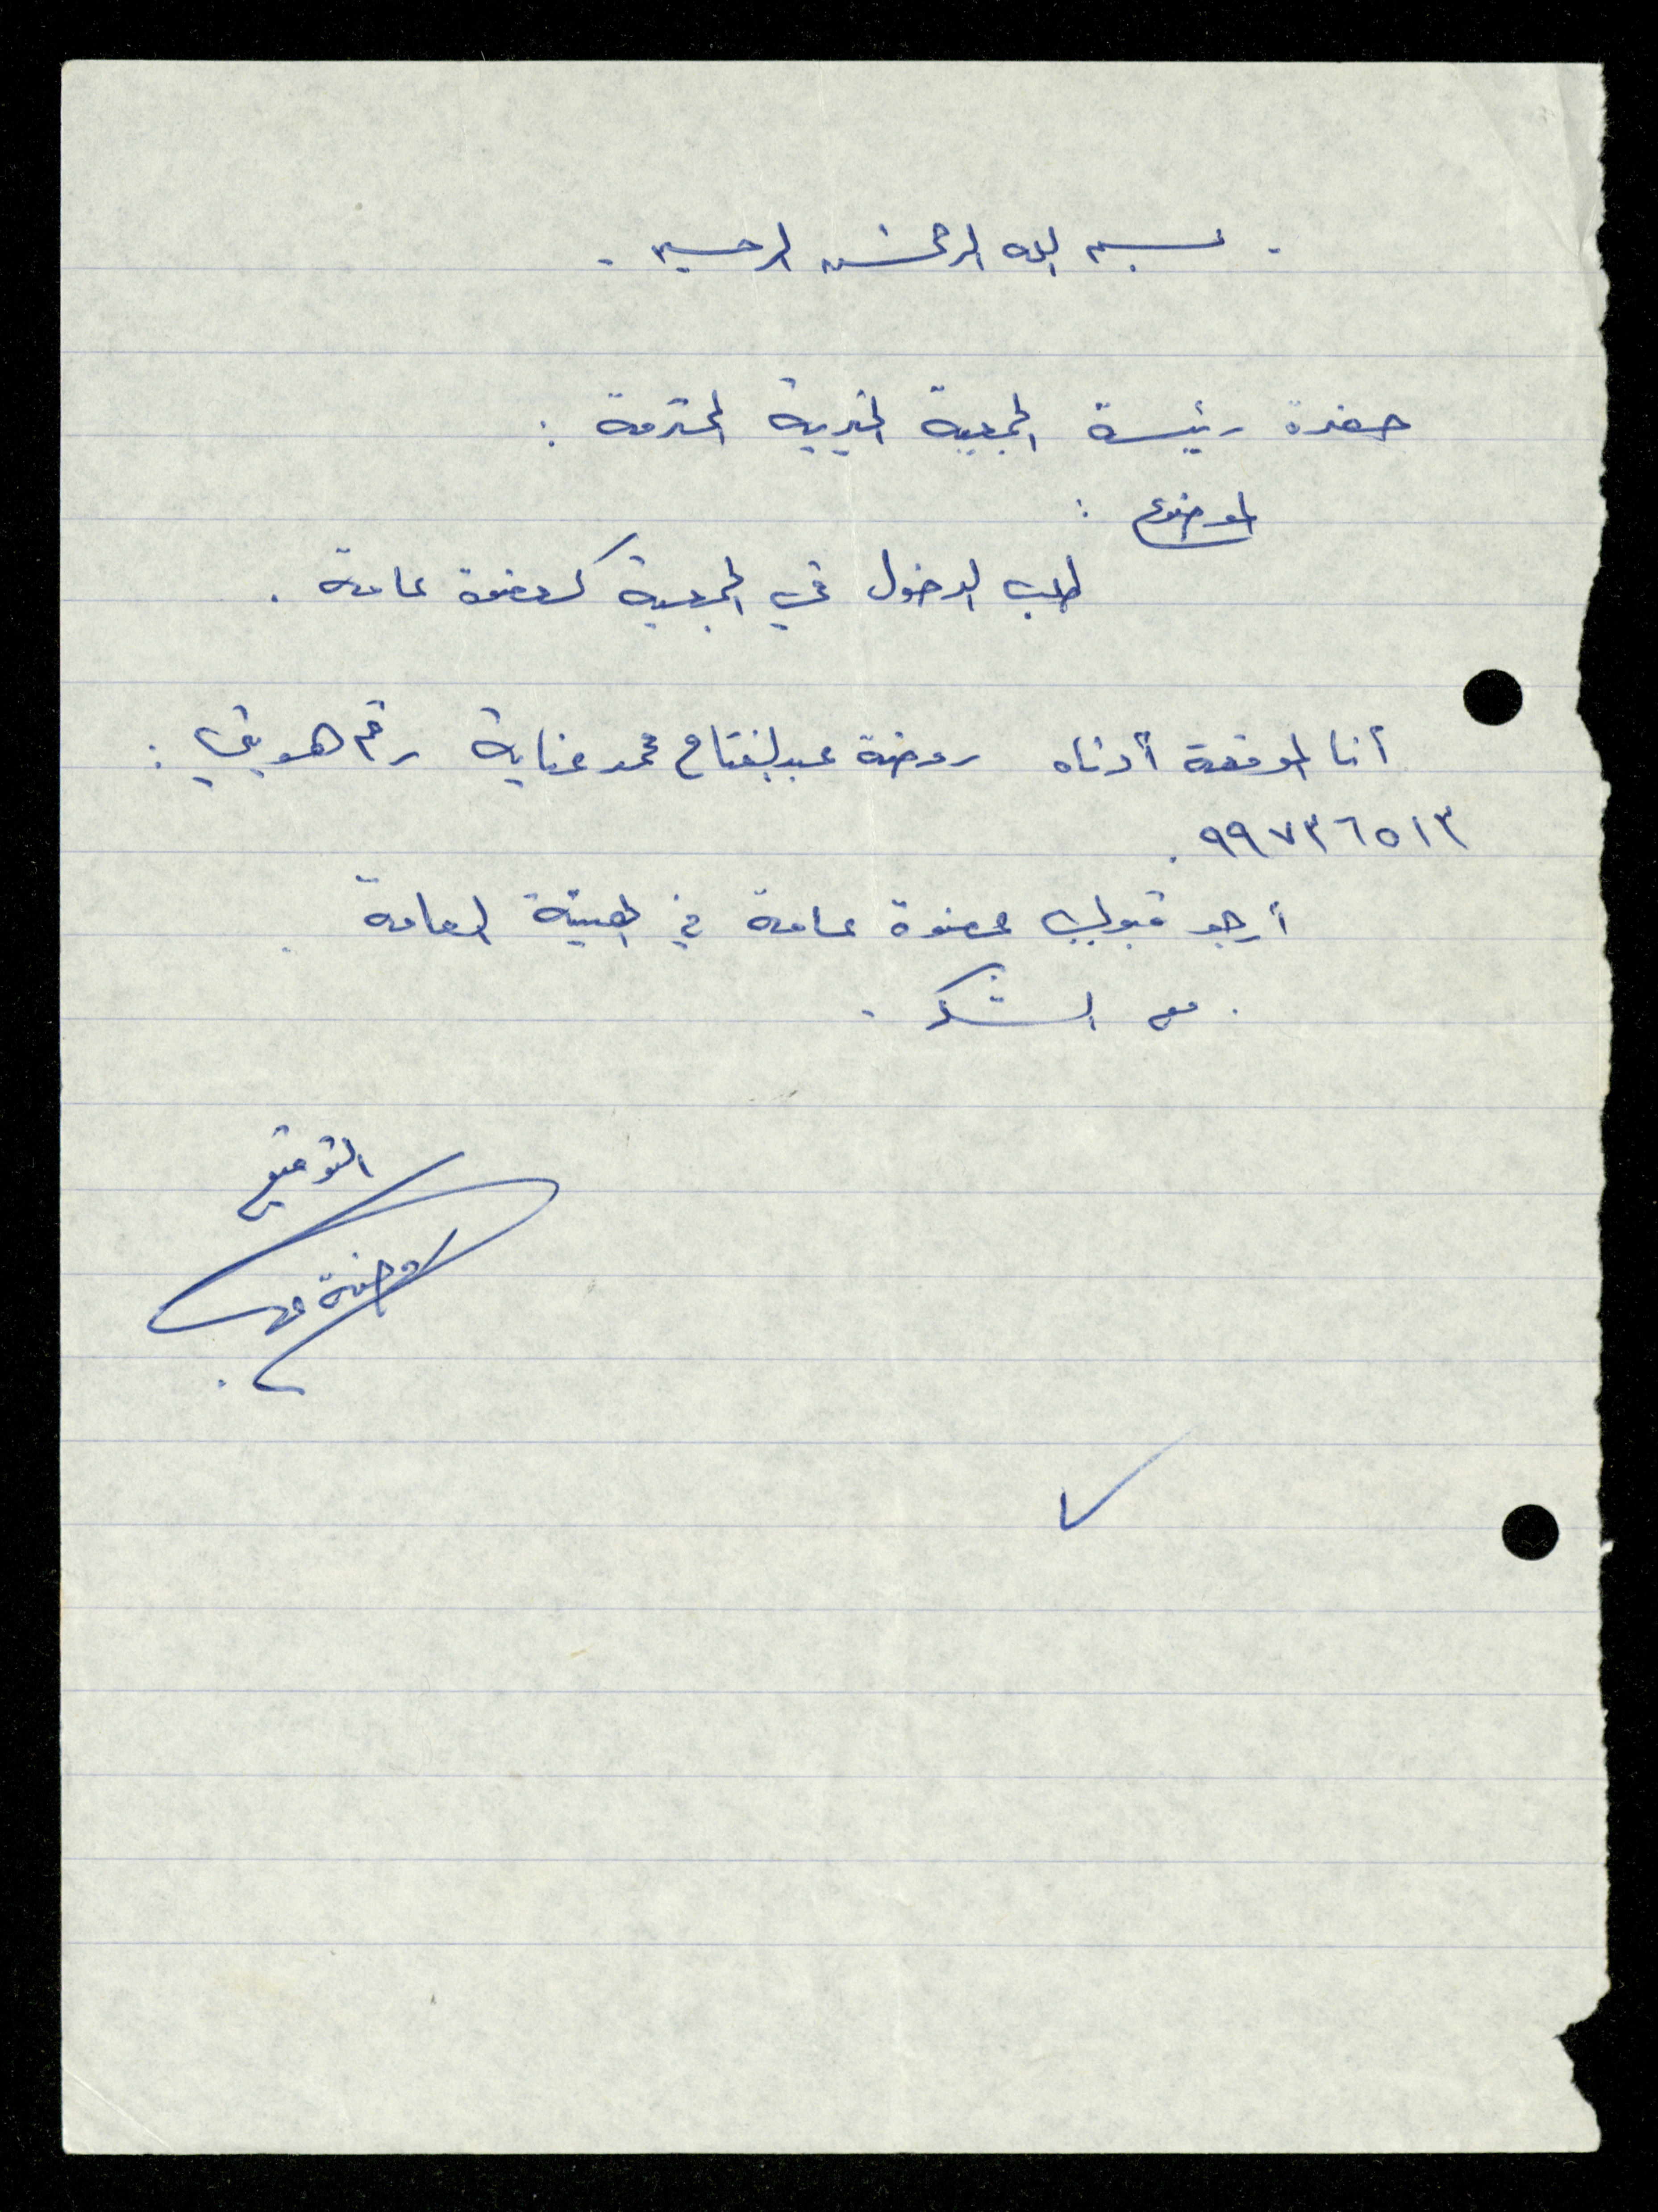 . بسم الله الرحمن الرحيم .
حضرة رئيسة الجمعية الخيرية المحترمة :
الموضوع :
طلب الدخول في الجمعية كعضوة عامة .
أنا الموقعة أدناه روضة عبدالفتاح محمد عناية رقم هويتي :
٩٩٧٣٦٥١٣ .
أرجو قبولي عضوة عامة في الهيئة العامة .
. مع الشكر .
التوقيع
روضة